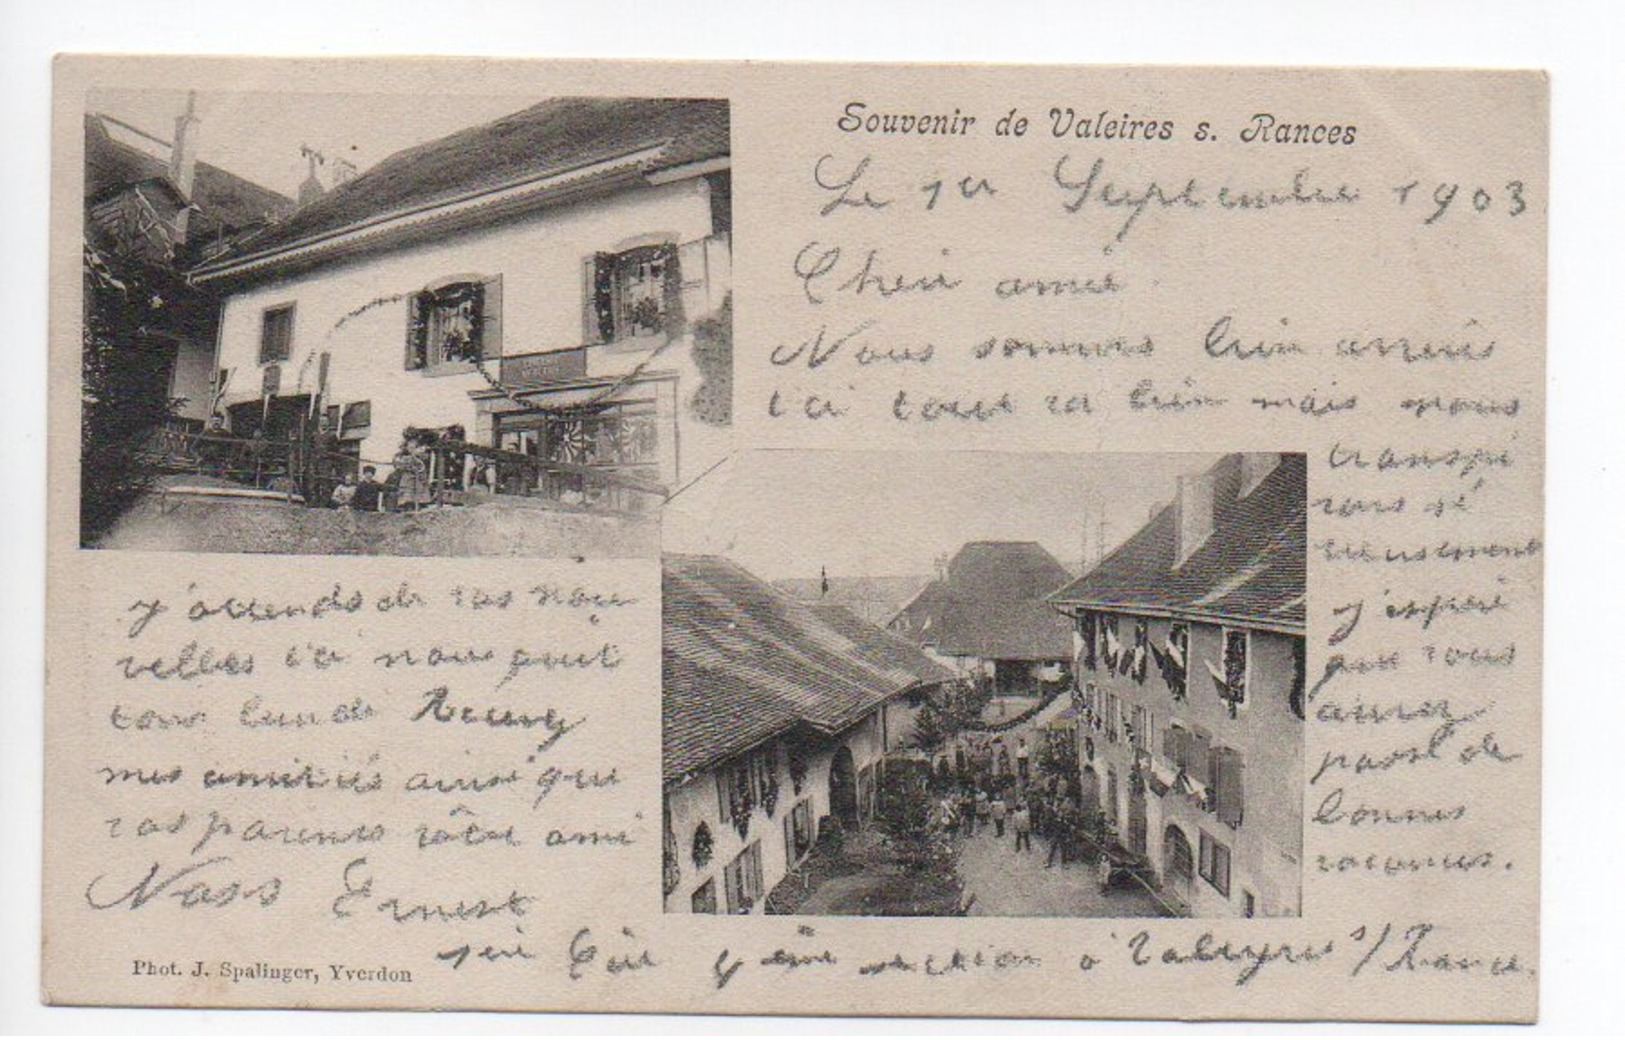 Souvenir de Valeires s. Rances
Le 1er Septembre 1903
Cheri amie.
Nous sommes bien arrivés
ici tout va bien mais nous
transpi
rons sé
rieusement
j'espère
que vous
aurez
passé de
bonnes
vacances.
j'attends de vos nou
velles ici
mes amitiés ainsi que
vos parents vôtre ami
Nass Ernest
section à Valeyres s/ Rance.
Phot. J. Spalinger, Yverdon